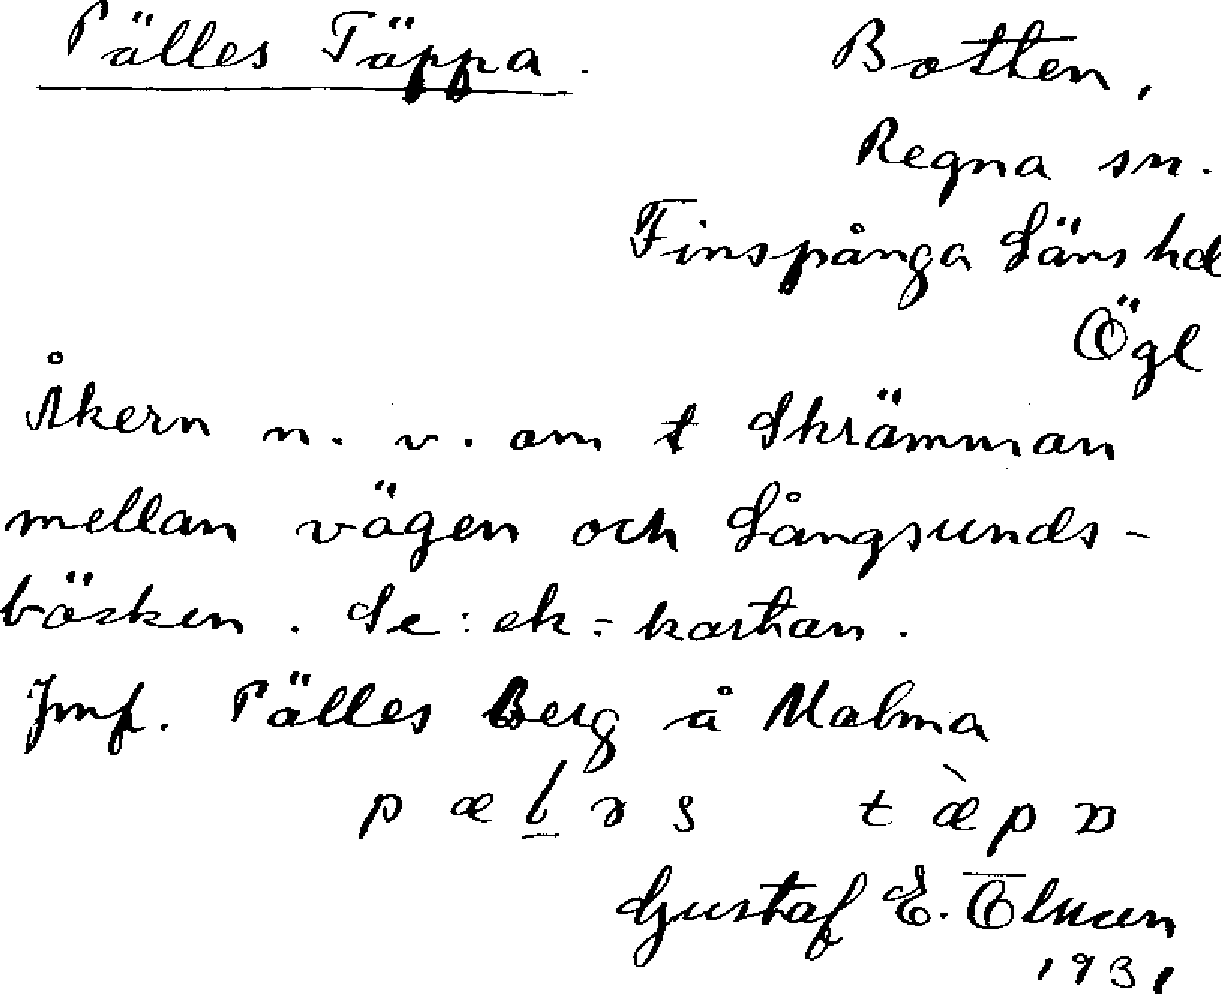 Pälles Täppa.
Botten,
Regna sn.
Finspånga Läns hd
Ögl
Åkern n. v. om t Skrämman
mellan vägen och Långsunds-
bäcken. Se: ek-kartan.
Jmf. Pälles Berg å Malma
Gustaf E.
1931